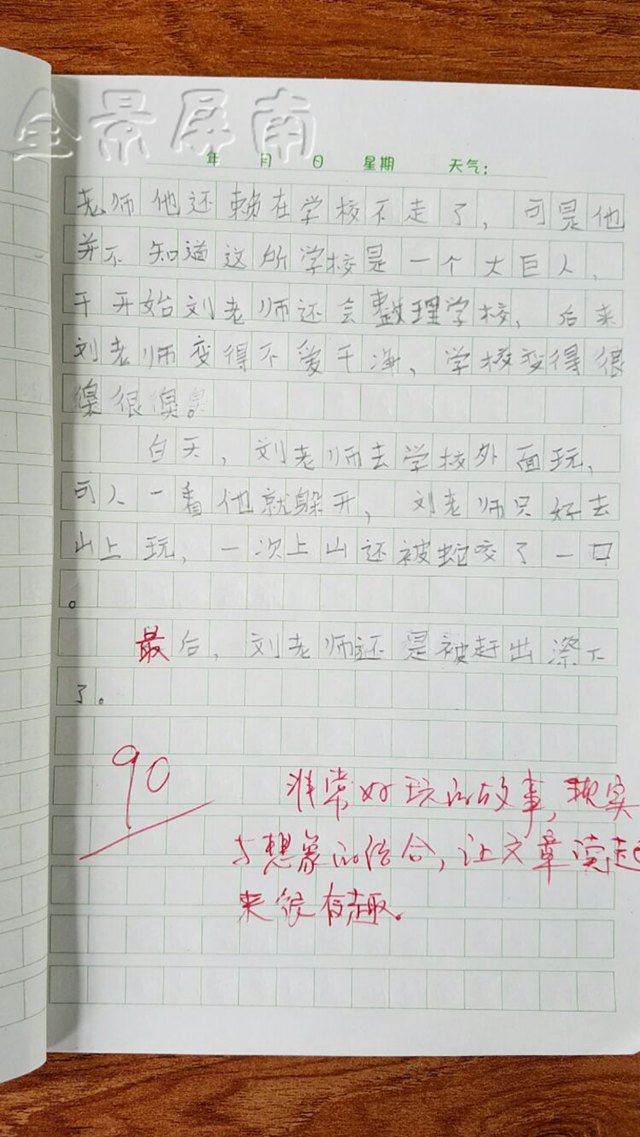 全景屏南
年 月 日 星期 天气:
老师他还赖在学校不走了，可是他
并不知道这所学校是一个大巨人，
干开始刘老师还会整理学校，后来
刘老师变得不爱干净，学校变得很
臭很臭。
白天，刘老师去学校外面玩，
可人一看他就躲开，刘老师只好去
山上玩，一次上山还被蛇咬了一口
。
最后，刘老师还是被赶出漈下
了。
90
非常好玩的故事，现实
与想象的结合，让文章读起
来很有趣。